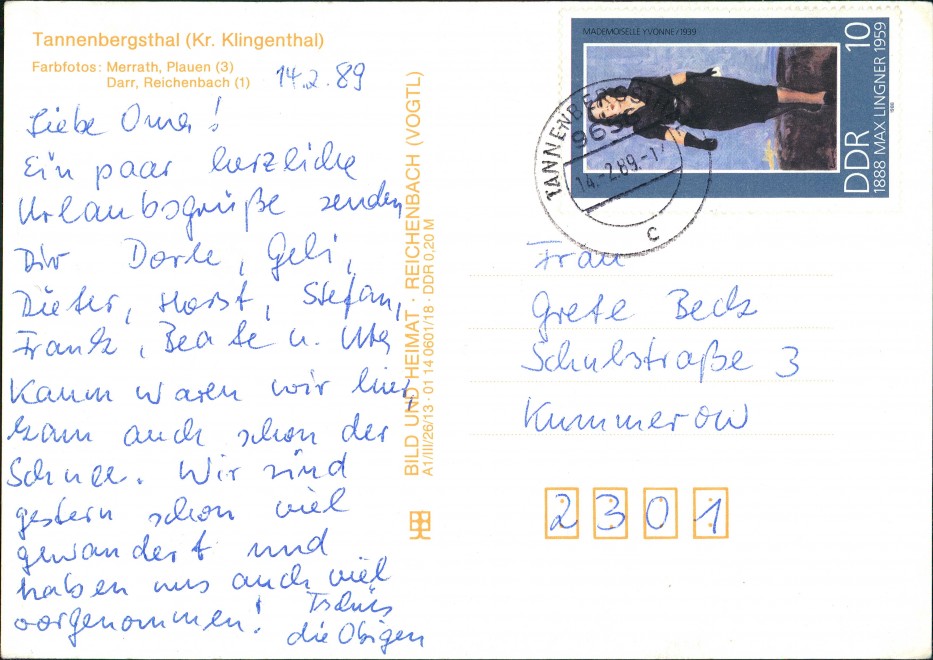 Tannenbergsthal (Kr. Klingenthal)
Farbfotos: Merrath, Plauen (3)
Darr, Reichenbach (1)
14.2.89
Liebe Oma!
Ein paar herzliche
Urlaubsgrüße senden
Dir Dorle, Geli,
Dieter, Horst, Stefan,
Frank, Beate u. Uta
Kaum waren wir hier,
kam auch schon der
Schnee. Wir sind
gestern schon viel
gewandert und
haben uns auch viel
vorgenommen! Tschüs
die Obigen
BILD UND HEIMAT · REICHENBACH (VOGTL)
A1/III/26/13 · 01 14 0601/18 · DDR 0,20 M
MADEMOISELLE YVONNE/1939
DDR 10
1888 MAX LINGNER 1959
TANNENBERGSTHAL
14.-2.89.-1
C
Frau
Grete Beck
Schulstraße 3
Kummerow
2301